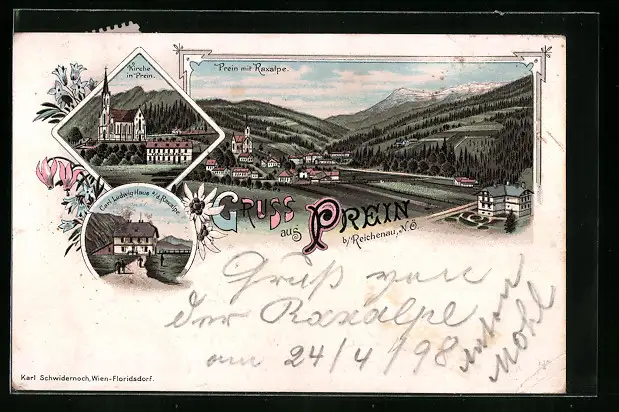 Kirche
in Prein.
Prein mit Raxalpe.
Carl Ludwig-Haus a/d Raxalpe
Gruss
aus Prein
b/Reichenau, N.Ö.
Gruß von
der Raxalpe
am 24/4/98
Anton
Mohl
Karl Schwidernoch, Wien-Floridsdorf.